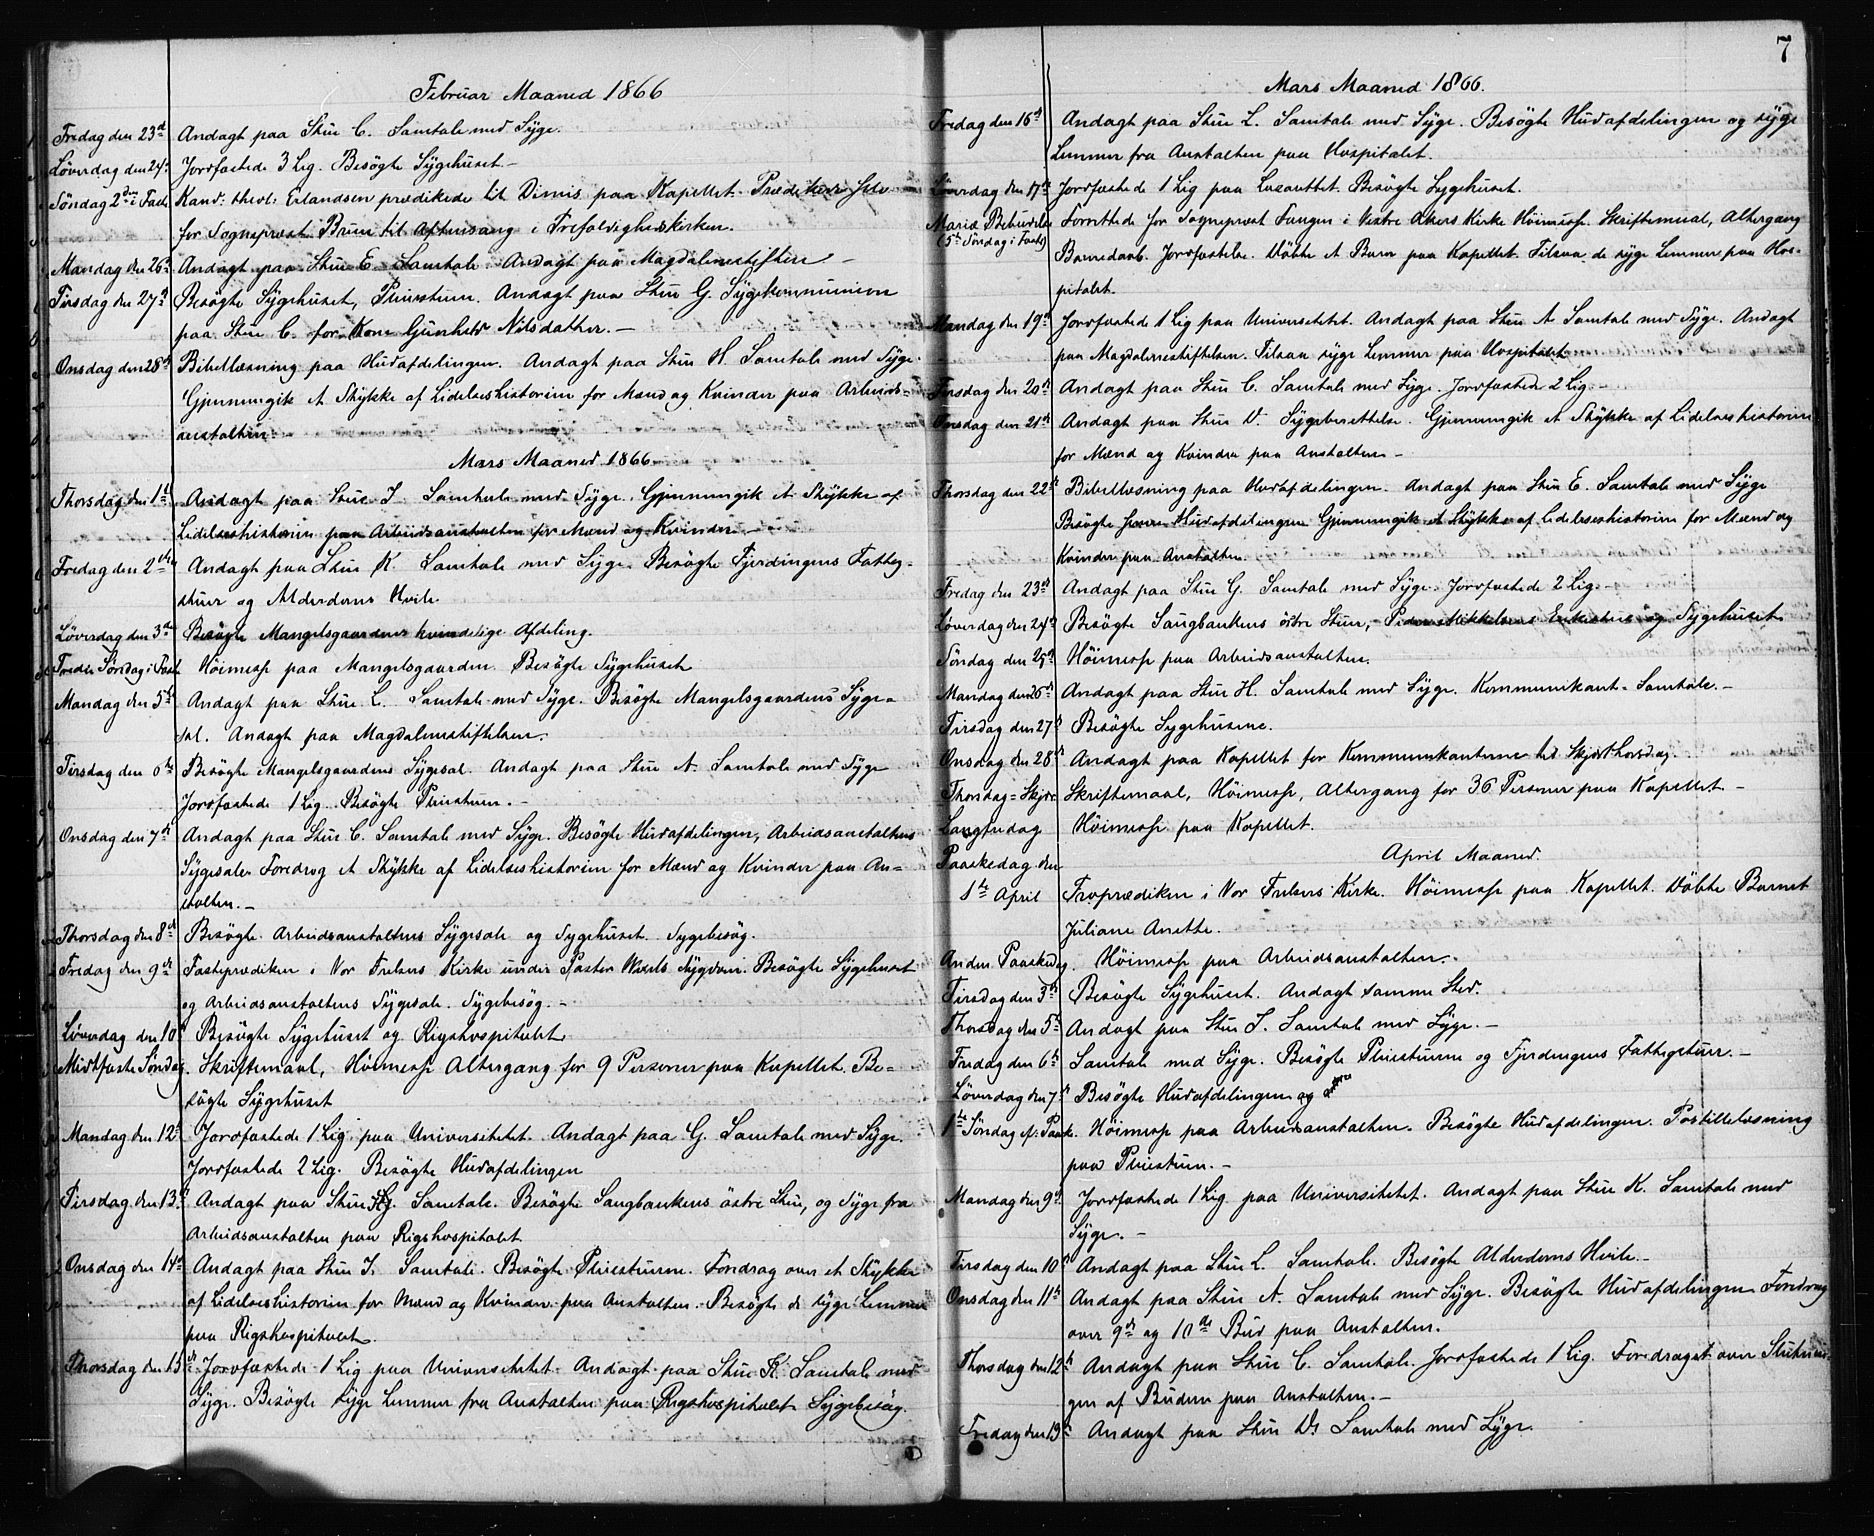 Februar Maaned 1866
Fredag den 23de Andagt paa Stue C. Samtale med Syge.
Løverdag den 24de Jordfæstede 3 Lig. Besögte Sygehuset –
Söndag 2den i Faste Kand: theol: Erlandsen prædikede til Dimis paa Kapellet. Prædikede selv
for Sogneprest Bruun til Aftensang i Trefoldighedskirken.
Mandag den 26de Andagt paa Stue E. Samtale. Andagt paa Magdalenestiftelsen –
Tirsdag den 27de Besögte Sygehuset, Pleiestuen. Andagt paa Stue G. Sygekommunion
paa Stue C. for Kone Gunhild Nilsdatter. –
Onsdag den 28de Bibellæsning paa Hudafdelingen. Andagt paa Stue H. Samtale med Syge.
Gjennemgik et Stykke af Lidelseshistorien for Mænd og Kvinder paa Arbeids-
anstalten.
Mars Maaned 1866
Thorsdag den 1ste Andagt paa Stue I. Samtale med Syge. Gjennemgik et Stykke af
Lidelseshistorien paa Arbeidsanstalten for Mænd og Kvinder –
Fredag den 2den Andagt paa Stue K. Samtale med Syge. Besögte Fjerdingens Fattig-
stuer og Alderdoms Hvile
Løverdag den 3die Besögte Mangelsgaardens kvindelige Afdeling.
Tredie Söndag i Faste Höimesse paa Mangelsgaarden. Besögte Sygehuset
Mandag den 5te Andagt paa Stue L. Samtale med Syge. Besögte Mangelsgaardens Syge-
sal. Andagt paa Magdalenestiftelsen.
Tirsdag den 6te Besögte Mangelsgaardens Sygesal. Andagt paa Stue A. Samtale med Syge
Jordfæstede 1 Lig. Besögte Pleiestuen. –
Onsdag den 7de Andagt paa Stue C. Samtale med Syge. Besögte Hudafdelingen, Arbeidsanstaltens
Sygesale. Foredrog et Stykke af Lidelseshistorien for Mænd og Kvinder paa An-
stalten. –
Thorsdag den 8de Besögte Arbeidsanstaltens Sygesale og Sygehuset. Sygebesög.
Fredag den 9de Fasteprædiken i Vor Frelsers Kirke under Pastor Wexels Sygdom. Besögte Sygehuset
og Arbeidsanstaltens Sygesale. Sygebesög. –
Løverdag den 10de Besögte Sygehuset og Rigshospitalet
Midtfaste Söndag. Skriftemaal, Höimesse Altergang for 9 Personer paa Kapellet. Be-
sögte Sygehuset
Mandag den 12te Jordfæstede 1 Lig paa Universitetet. Andagt paa G. Samtale med Syge.
Jordfæstede 2 Lig. Besögte Hudafdelingen
Tirsdag den 13de Andagt paa Stue Samtale. Besögte Sangbankens östre Stue, og Syge fra
Arbeidsanstalten paa Rigshospitalet
Onsdag den 14de Andagt paa Stue I. Samtale. Besögte Pleiestuerne. Foredrag over et Stykke
af Lidelseshistorien for Mænd og Kvinder paa Anstalten. Besögte de syge Lemmer
paa Rigshospitalet.
Thorsdag den 15de Jordfæstede 1 Lig paa Universitetet. Andagt paa Stue K. Samtale med
Syge. Besögte syge Lemmer fra Anstalten paa Rigshospitalet. Sygebesög.
7
Mars Maaned 1866.
Fredag den 16de Andagt paa Stue L. Samtale med Syge. Besögte Hudafdelingen og syge
Lemmer fra Anstalten paa Hospitalet.
Løverdag den 17de Jordfæstede 1 Lig paa Lazarettet. Besögte Sygehuset.
Mariæ Bebudelse Forrettede for Sogneprest Fangen i Vestre Akers Kirke Höimesse. Skriftemaal, Altergang
(5te Söndag i Faste) Barnedaab. Jordfæstelse. Döbte et Barn paa Kapellet. Tilsaa de syge Lemmer paa Hos-
pitalet.
Mandag den 19de Jordfæstede 1 Lig paa Universitetet. Andagt paa Stue A. Samtale med Syge. Andagt
paa Magdalenestiftelsen. Tilsaa syge Lemmer paa Hospitalet
Tirsdag den 20de Andagt paa Stue C. Samtale med Syge. Jordfæstede 2 Lig –
Onsdag den 21de Andagt paa Stue D. Sygeberettelse. Gjennemgik et Stykke af Lidelseshistorien
for Mænd og Kvinder paa Anstalten –
Thorsdag den 22de Bibellæsning paa Hudafdelingen. Andagt paa Stue E. Samtale med Syge
Besögte Hudafdelingen Gjennemgik et Stykke af Lidelseshistorien for Mænd og
Kvinder paa Anstalten
Fredag den 23de Andagt paa Stue G. Samtale med Syge. Jordfæstede 2 Lig.
Løverdag den 24de Besögte Sangbankens östre Stue, Peder Mikkelsens Enkestue og Sygehuset
Söndag den 25de Höimesse paa Arbeidsanstalten.
Mandag den 26de Andagt paa Stue H. Samtale med Syge. Kommunikant-Samtale. –
Tirsdag den 27de Besögte Sygehusene.
Onsdag den 28de Andagt paa Kapellet for Kommunikanterne til Skjærthorsdag.
Thorsdag – Skjær Skriftemaal, Höimesse, Altergang for 36 Personer paa Kapellet –
Langfredag Höimesse paa Kapellet.
April Maaned.
Paaskedag den
1ste April Froprædiken i Vor Frelsers Kirke. Höimesse paa Kapellet. Döbte Barnet
Juliane Anette.
Anden Paaskedag. Höimesse paa Arbeidsanstalten.
Tirsdag den 3die Besögte Sygehuset. Andagt samme Sted.
Thorsdag den 5te Andagt paa Stue I. Samtale med Syge. –
Fredag den 6te Samtale med Syge. Besögte Pleiestuerne og Fjerdingens Fattigstuer. –
Løverdag den 7de Besögte Hudafdelingen og
1ste Söndag ef: Paaske. Höimesse paa Arbeidsanstalten. Besögte Hudafdelingen. Postillelæsning
paa Pleiestuen. –
Mandag den 9de Jordfæstede 1 Lig paa Universitetet. Andagt paa Stue K. Samtale med
Syge. –
Tirsdag den 10de Andagt paa Stue L. Samtale. Besögte Alderdoms Hvile. –
Onsdag den 11te Andagt paa Stue A. Samtale med Syge. Besögte Hudafdelingen Foredrag
over 9de og 10de Bud paa Anstalten.
Thorsdag den 12te Andagt paa Stue C. Samtale. Jordfæstede 1 Lig. Foredraget over Slutnin-
gen af Budene paa Anstalten. –
Fredag den 13de Andagt paa Stue D. Samtale med Syge.